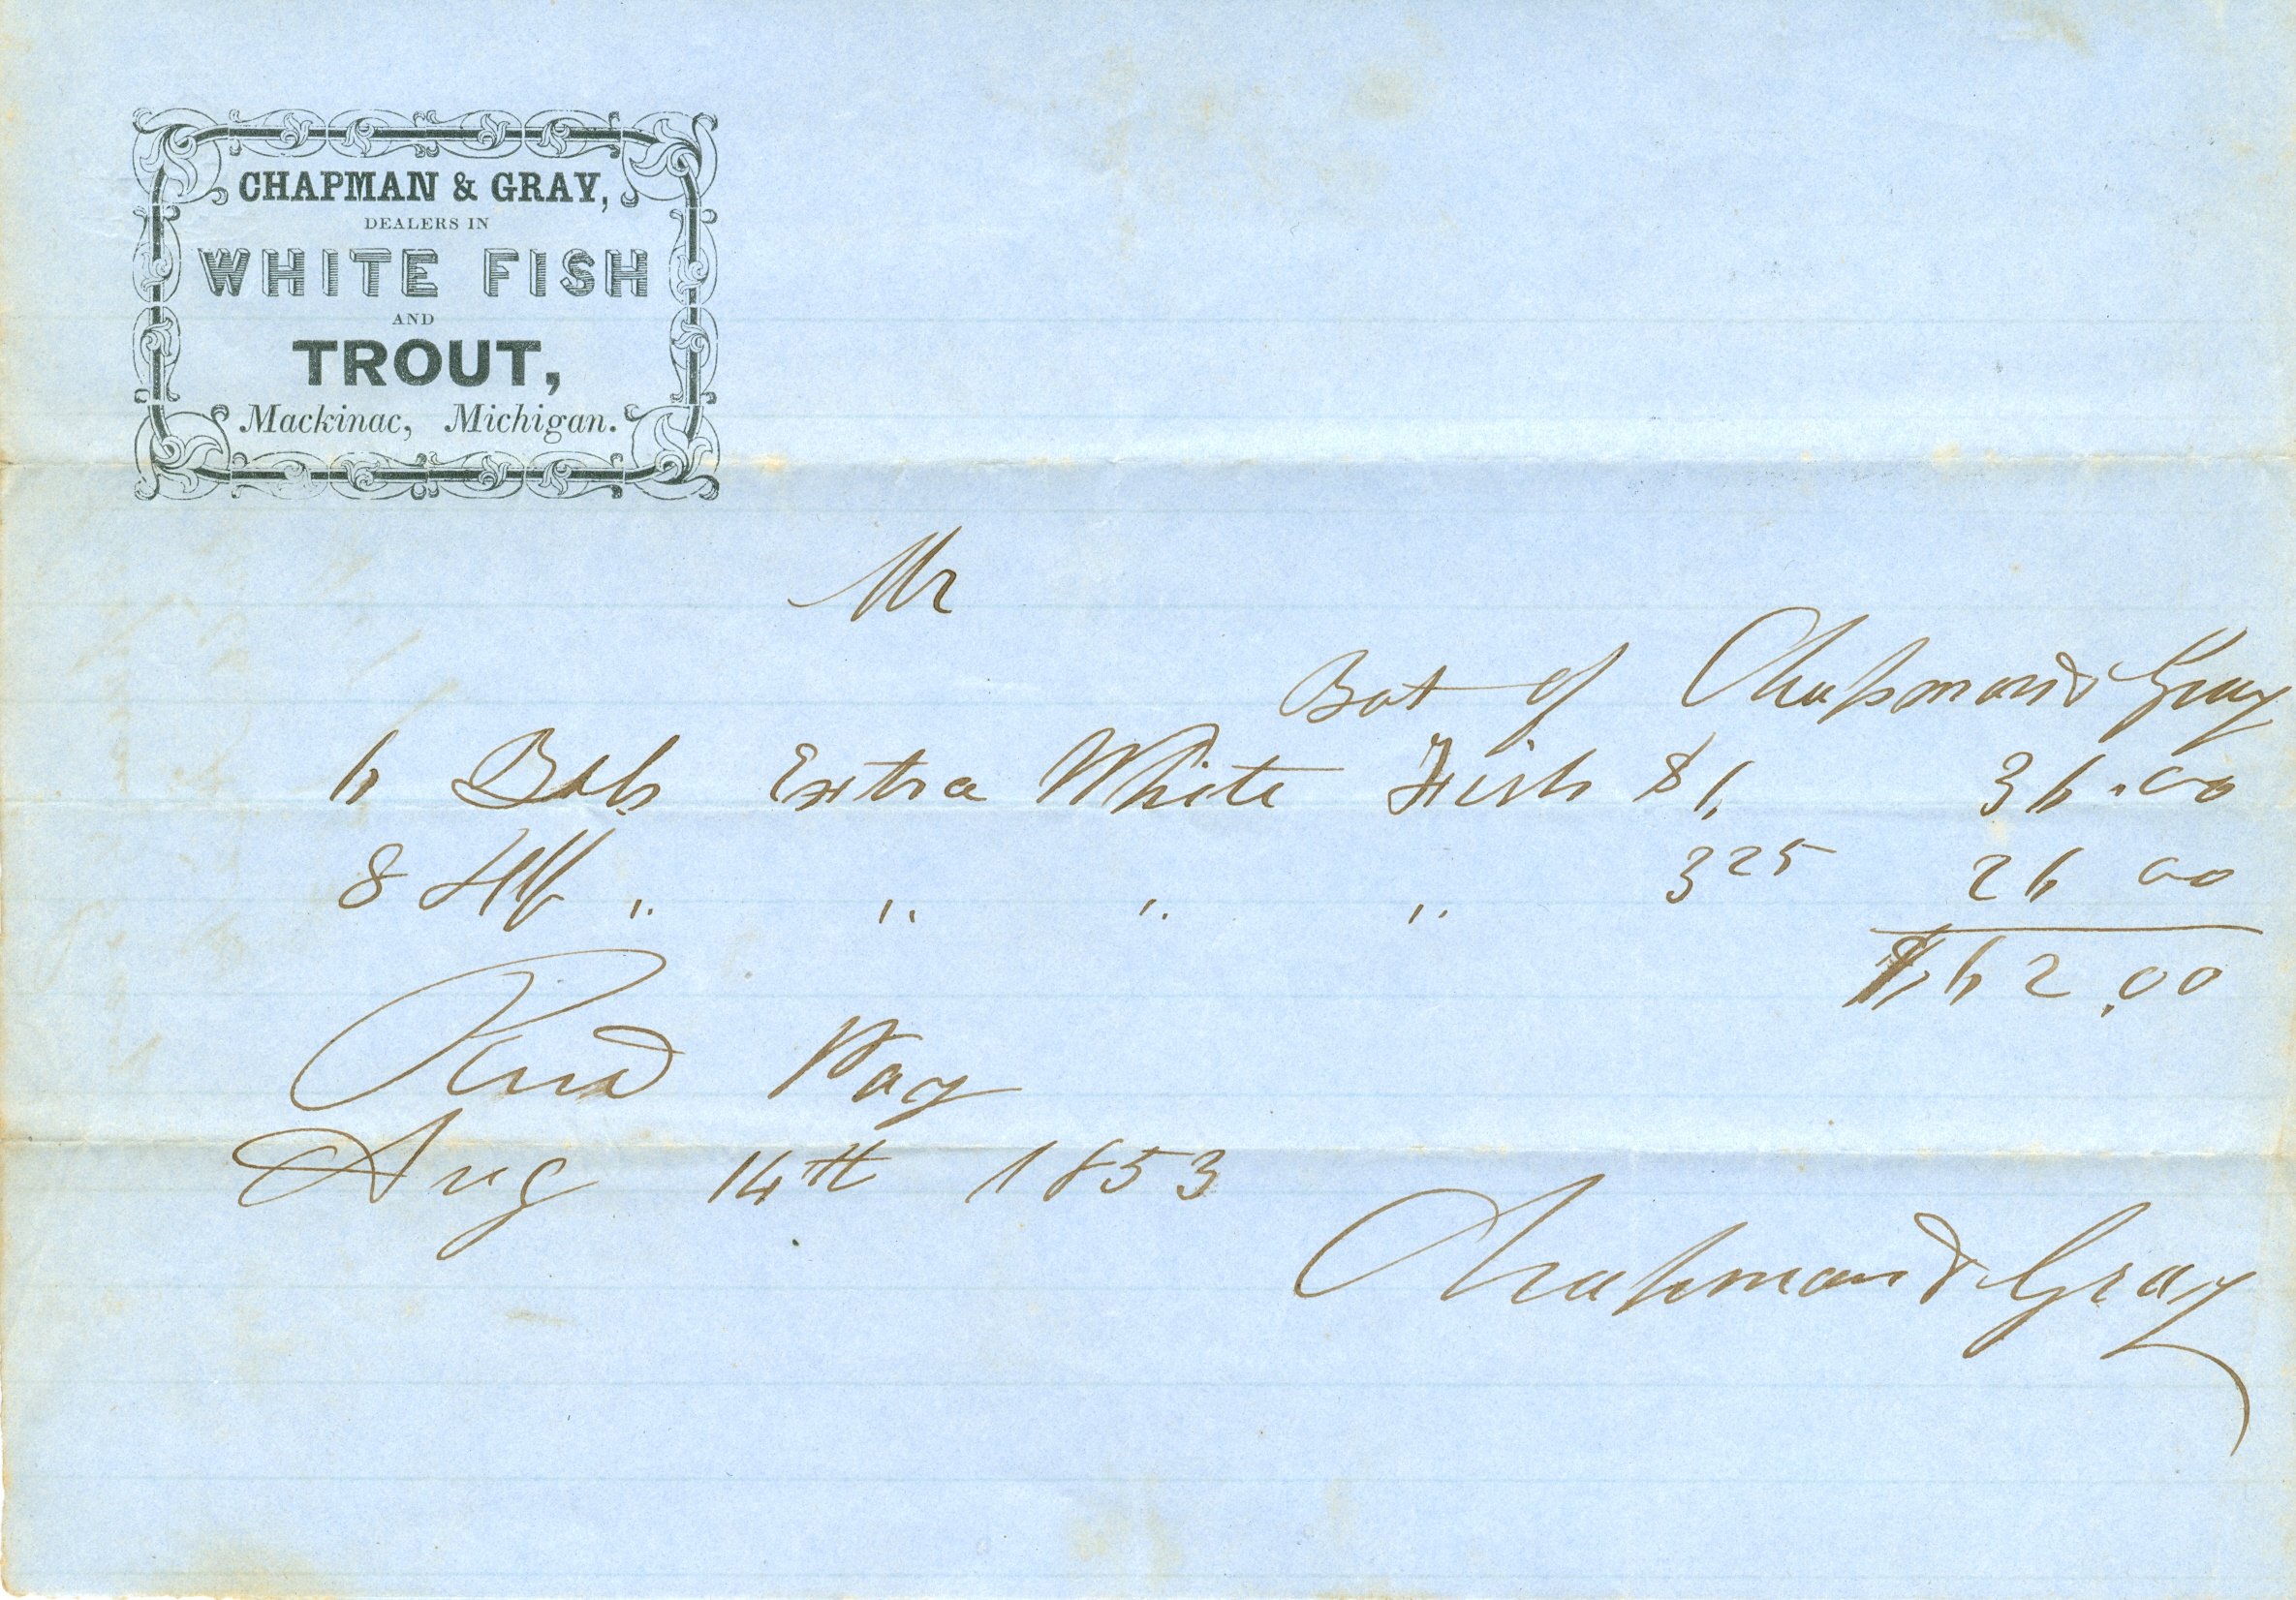 CHAPMAN & GRAY,
DEALERS IN
WHITE FISH
AND
TROUT,
Mackinac, Michigan.
Mr
Bot of Chapman & Gray
6 Bbls Extra White Fish $6. 36.00
8 Hlf " " " " 3 25 26 00
$62.00
Recd Pay
Aug 14th 1853
Chapman & Gray